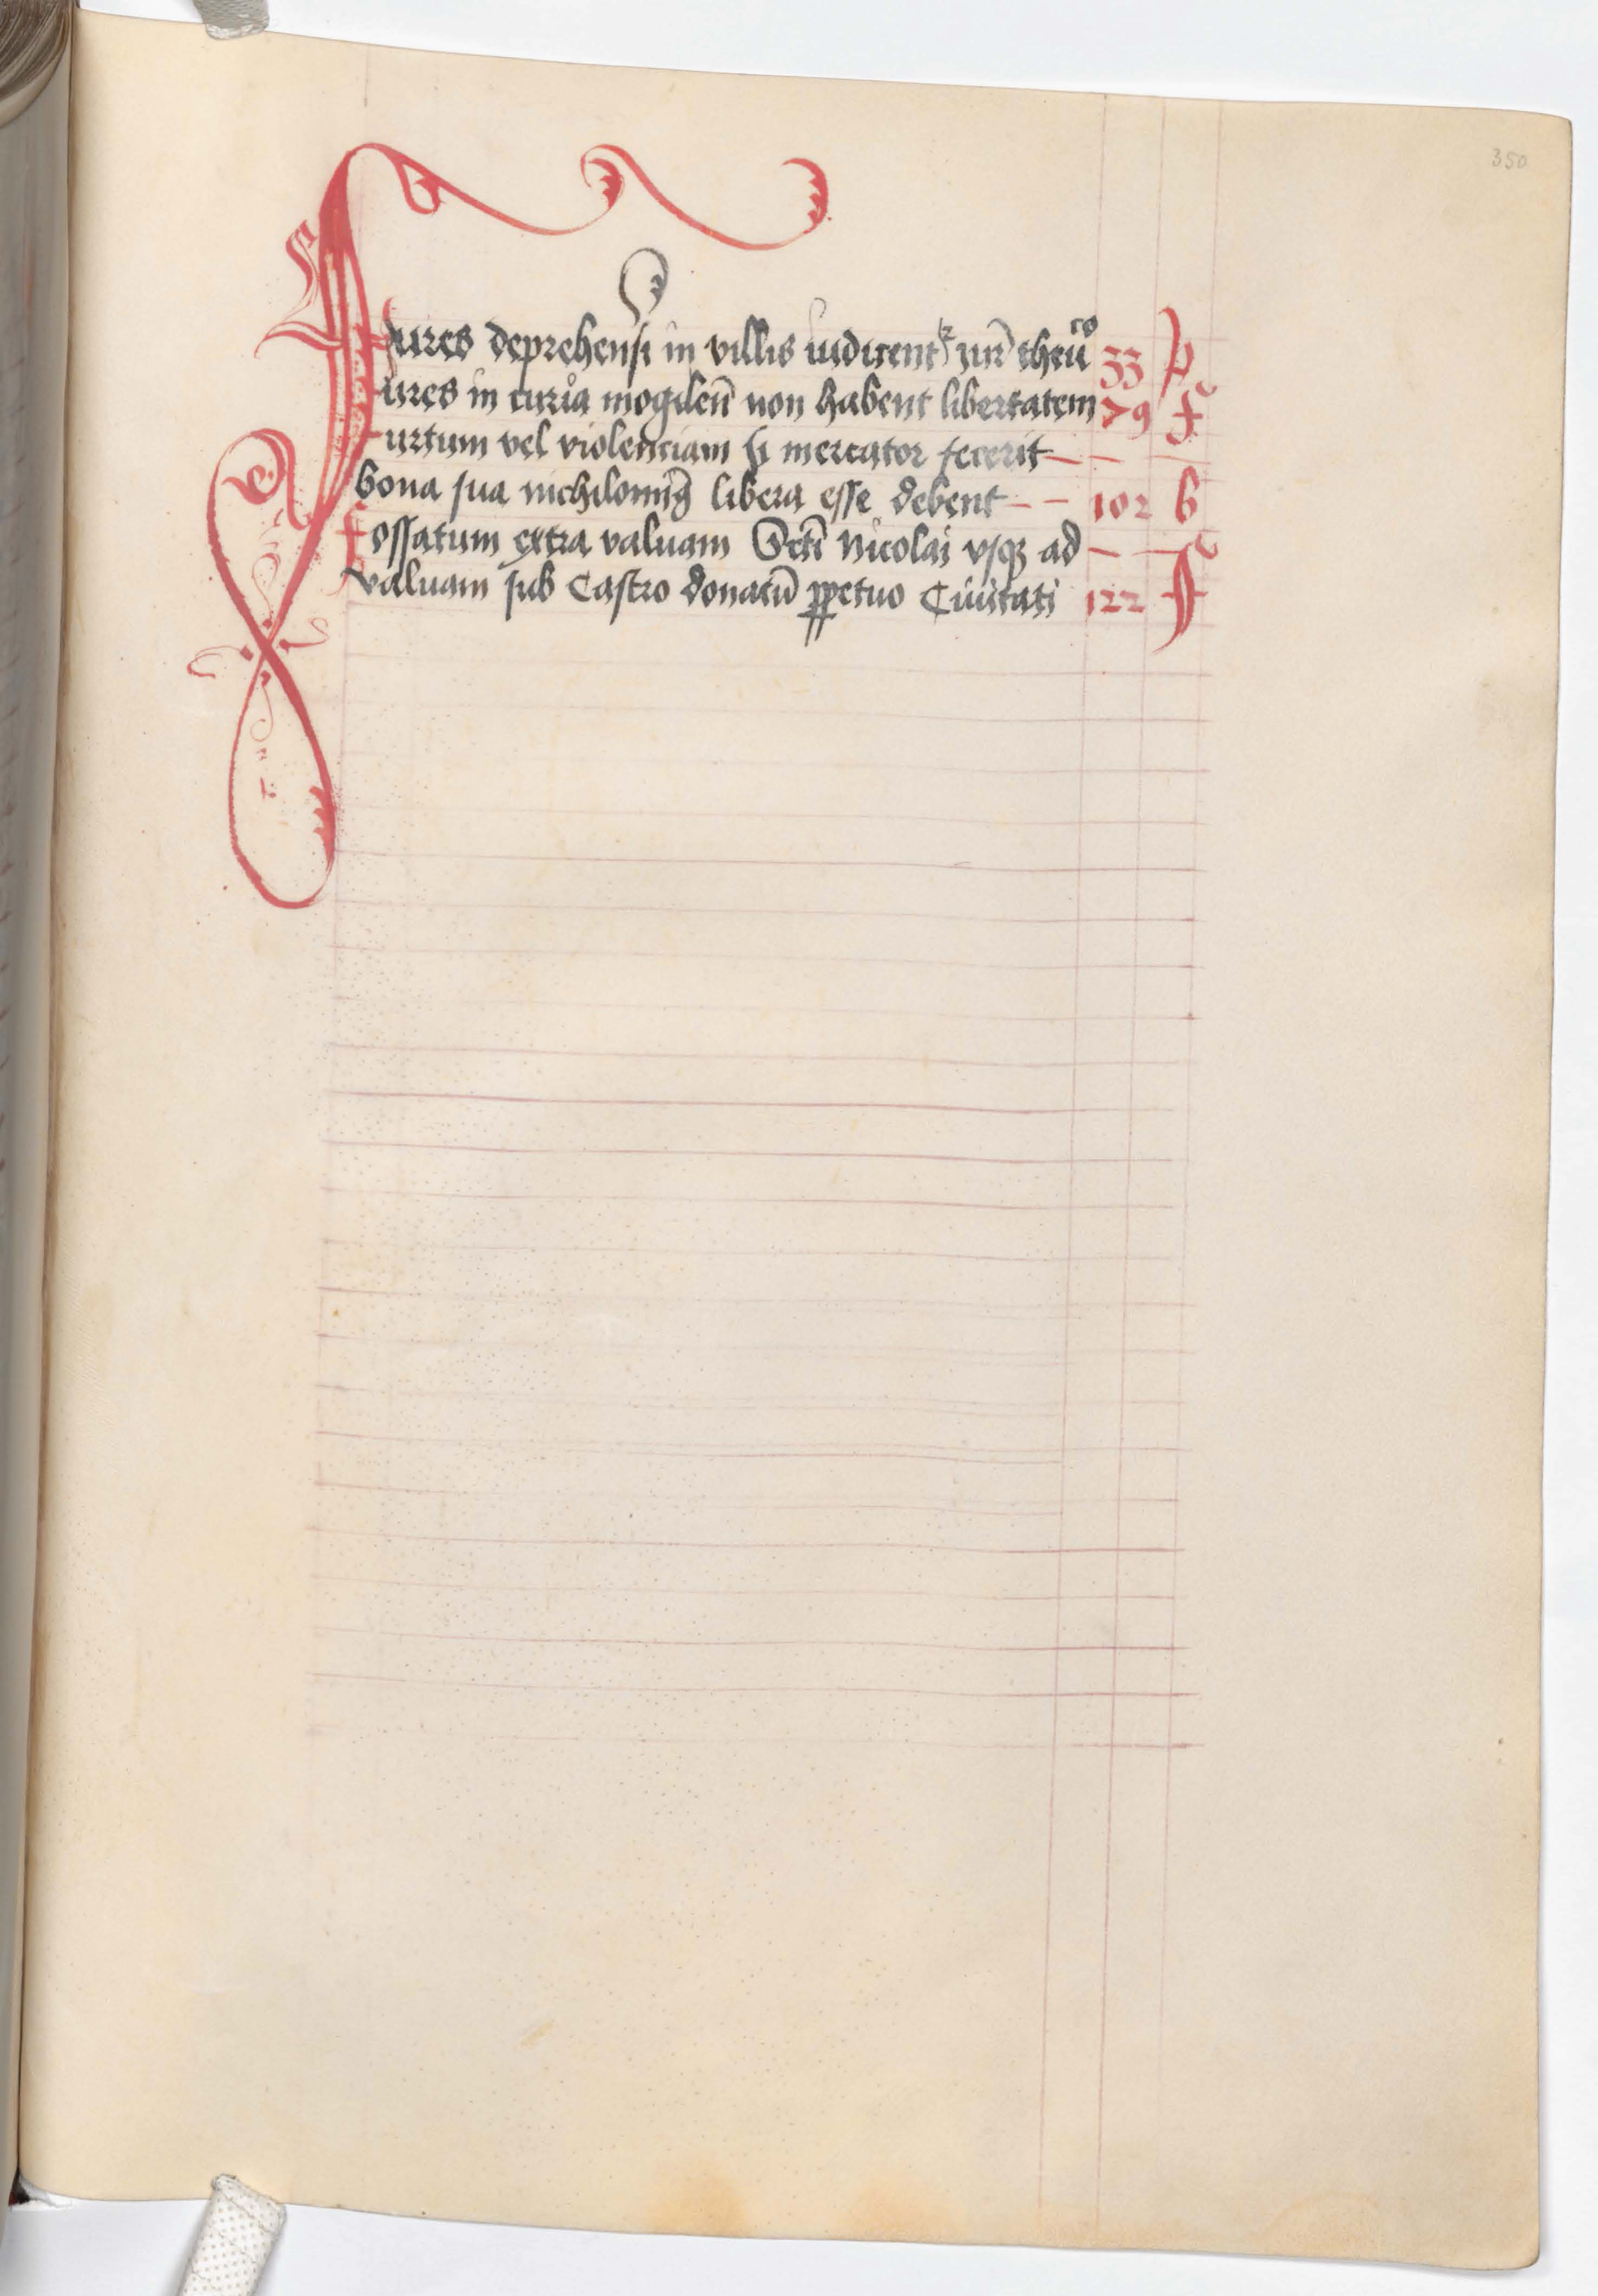 350
Fures deprehensi in villis iudicentʳ iur̄ theuᶜᵒ 33 p
Fures in curia mogdeñ non habent libertatem 79 f
Furtum vel violenciam si mercator fecerit — —
bona sua nichilomiꝰ libera esse debent — — 102 b
Fossatum extra valuam Scti Nicolai vsqꝫ ad — —
valuam sub Castro donatū ꝑpetuo Ciuitati 122 f